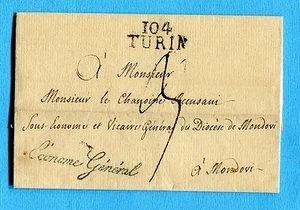 104
TURIN
À Monsieur
Monsieur le Chanoine Accusani
Sous-Econome et Vicaire Général du Diocèse de Mondovi
à Mondovi
L'Econome Général